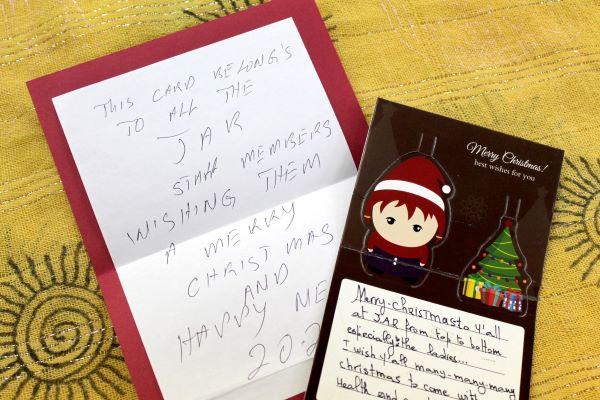 THIS CARD BELONG'S
TO ALL THE
JAR
STAFF MEMBERS
WISHING THEM
A MERRY
CHRISTMAS
AND
HAPPY
20
Merry Christmas!
best wishes for you
Merry-christmas to y'all
at JAR from top to bottom
especially the ladies...
I wish y'all many-many-many
christmas to come with
Health and